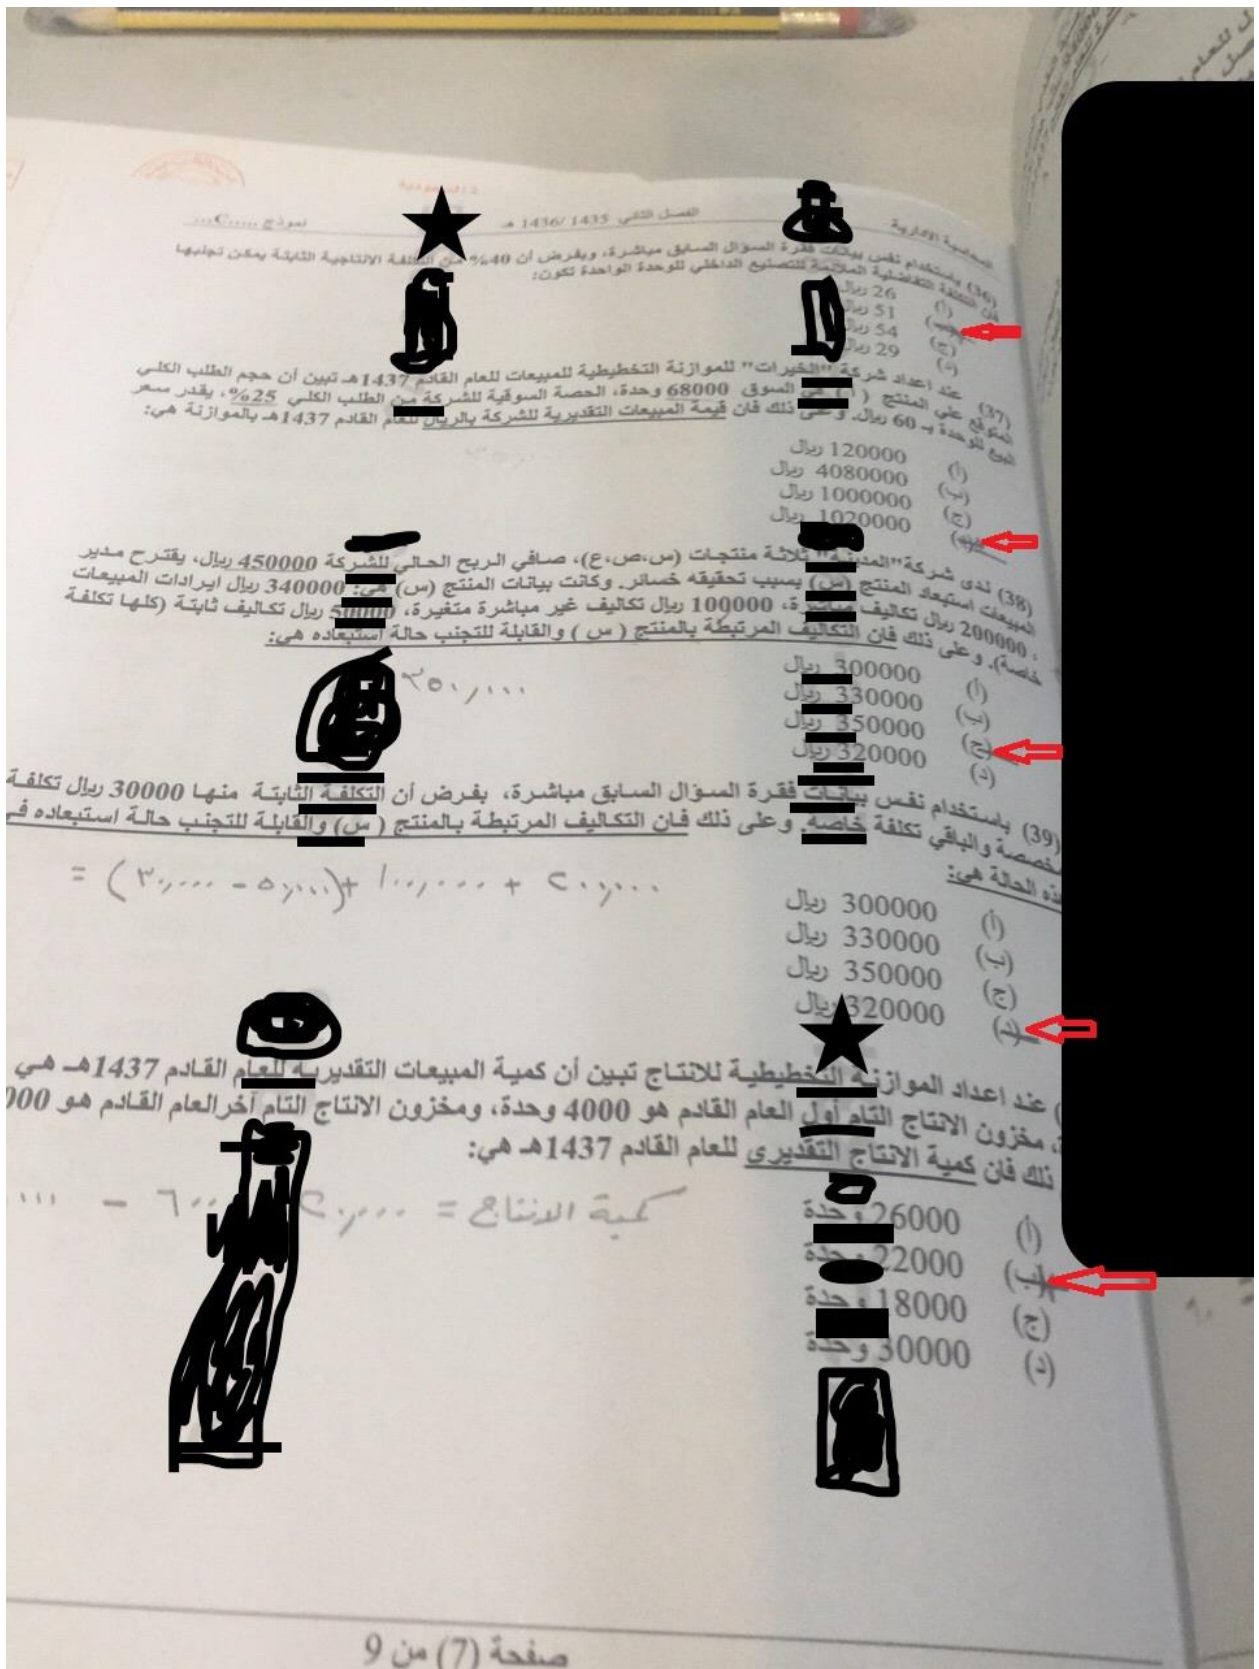 المحاسبة الادارية
الفصل الثاني 1435 /1436 هـ
نموذج ...C.....
(36) باستخدام نفس بيانات فقرة السؤال السابق مباشرة، وبفرض أن 40% من التكلفة الانتاجية الثابتة يمكن تجنبها
فان التكلفة التفاضلية الملائمة للتصنيع الداخلي للوحدة الواحدة تكون:
(أ) 26 ريال
(ب) 51 ريال
(ج) 54 ريال
(د) 29 ريال
(37) عند اعداد شركة "الخيرات" للموازنة التخطيطية للمبيعات للعام القادم 1437هـ تبين أن حجم الطلب الكلي
المتوقع على المنتج ( أ ) في السوق 68000 وحدة، الحصة السوقية للشركة من الطلب الكلي 25%، يقدر سعر
البيع للوحدة بـ 60 ريال. وعلى ذلك فان قيمة المبيعات التقديرية للشركة بالريال للعام القادم 1437هـ بالموازنة هي:
(أ) 120000 ريال
(ب) 4080000 ريال
(ج) 1000000 ريال
(د) 1020000 ريال
(38) لدى شركة"المدينة" ثلاثة منتجات (س،ص،ع)، صافي الربح الحالي للشركة 450000 ريال، يقترح مدير
المبيعات استبعاد المنتج (س) بسبب تحقيقه خسائر. وكانت بيانات المنتج (س) هي: 340000 ريال ايرادات المبيعات
، 200000 ريال تكاليف مباشرة، 100000 ريال تكاليف غير مباشرة متغيرة، 50000 ريال تكاليف ثابتة (كلها تكلفة
خاصة). وعلى ذلك فان التكاليف المرتبطة بالمنتج ( س ) والقابلة للتجنب حالة استبعاده هي:
(أ) 300000 ريال
٣٥٠,٠٠٠
(ب) 330000 ريال
(ج) 350000 ريال
(د) 320000 ريال
(39) باستخدام نفس بيانات فقرة السؤال السابق مباشرة، بفرض أن التكلفة الثابتة منها 30000 ريال تكلفة
مخصصة والباقي تكلفة خاصة. وعلى ذلك فان التكاليف المرتبطة بالمنتج ( س) والقابلة للتجنب حالة استبعاده في
هذه الحالة هي:
٢٠٠,٠٠٠ + ١٠٠,٠٠٠ + (٥٠,٠٠٠ - ٣٠,٠٠٠) =
(أ) 300000 ريال
(ب) 330000 ريال
(ج) 350000 ريال
(د) 320000 ريال
عند اعداد الموازنة التخطيطية للانتاج تبين أن كمية المبيعات التقديرية للعام القادم 1437هـ هي
، مخزون الانتاج التام أول العام القادم هو 4000 وحدة، ومخزون الانتاج التام آخرالعام القادم هو
ذلك فان كمية الانتاج التقديري للعام القادم 1437هـ هي:
كمية الانتاج = ٢٠,٠٠٠
(أ) 26000 وحدة
(ب) 22000 وحدة
(ج) 18000 وحدة
(د) 30000 وحدة
صفحة (7) من 9